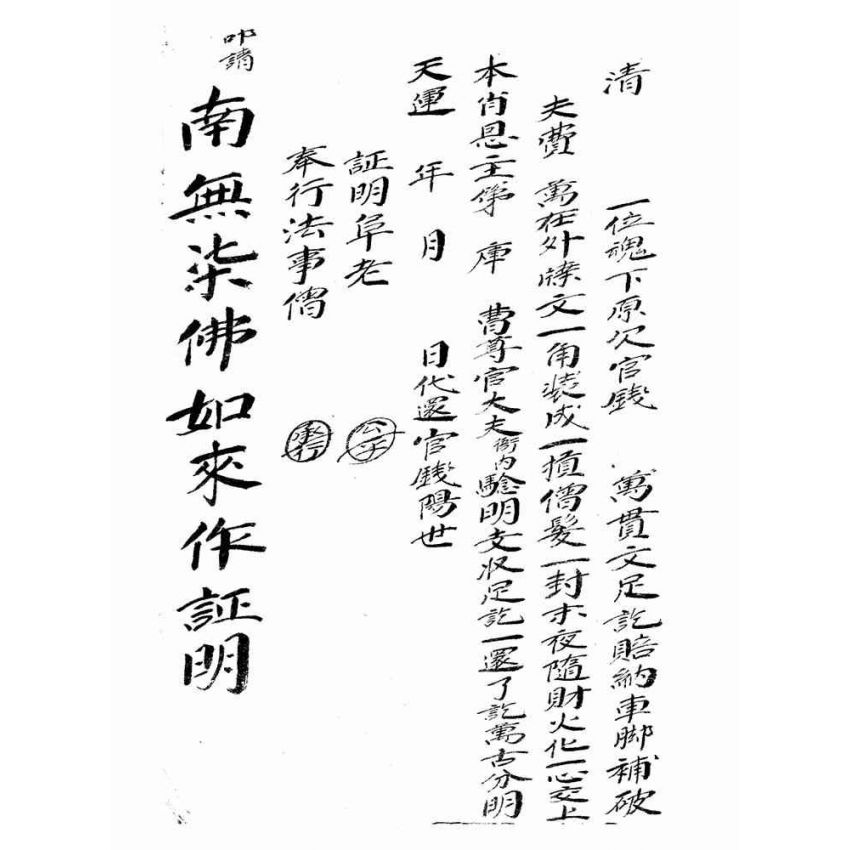 清 一位魂下原欠官錢 萬貫文足訖賠納車脚補破
夫費 萬在外牒文一角裝成一損僧髮一封未夜隨財火化一心交上
本肖恩主第 庫 曹尊官大夫衙内驗明支收足訖一還了訖萬古分明
天運 年 月 日代還官錢陽世
証明阜老
奉行法事僧
叩請
南無柒佛如來作証明